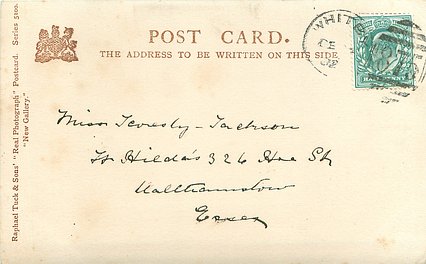 POST CARD.
THE ADDRESS TO BE WRITTEN ON THIS SIDE
Raphael Tuck & Sons' "Real Photograph" Postcard. Series 5100.
"New Gallery."
WHITS
DE
HALFPENNY
Miss -Jackson
St Hilda's 326 Hoe St
Walthamstow
Essex